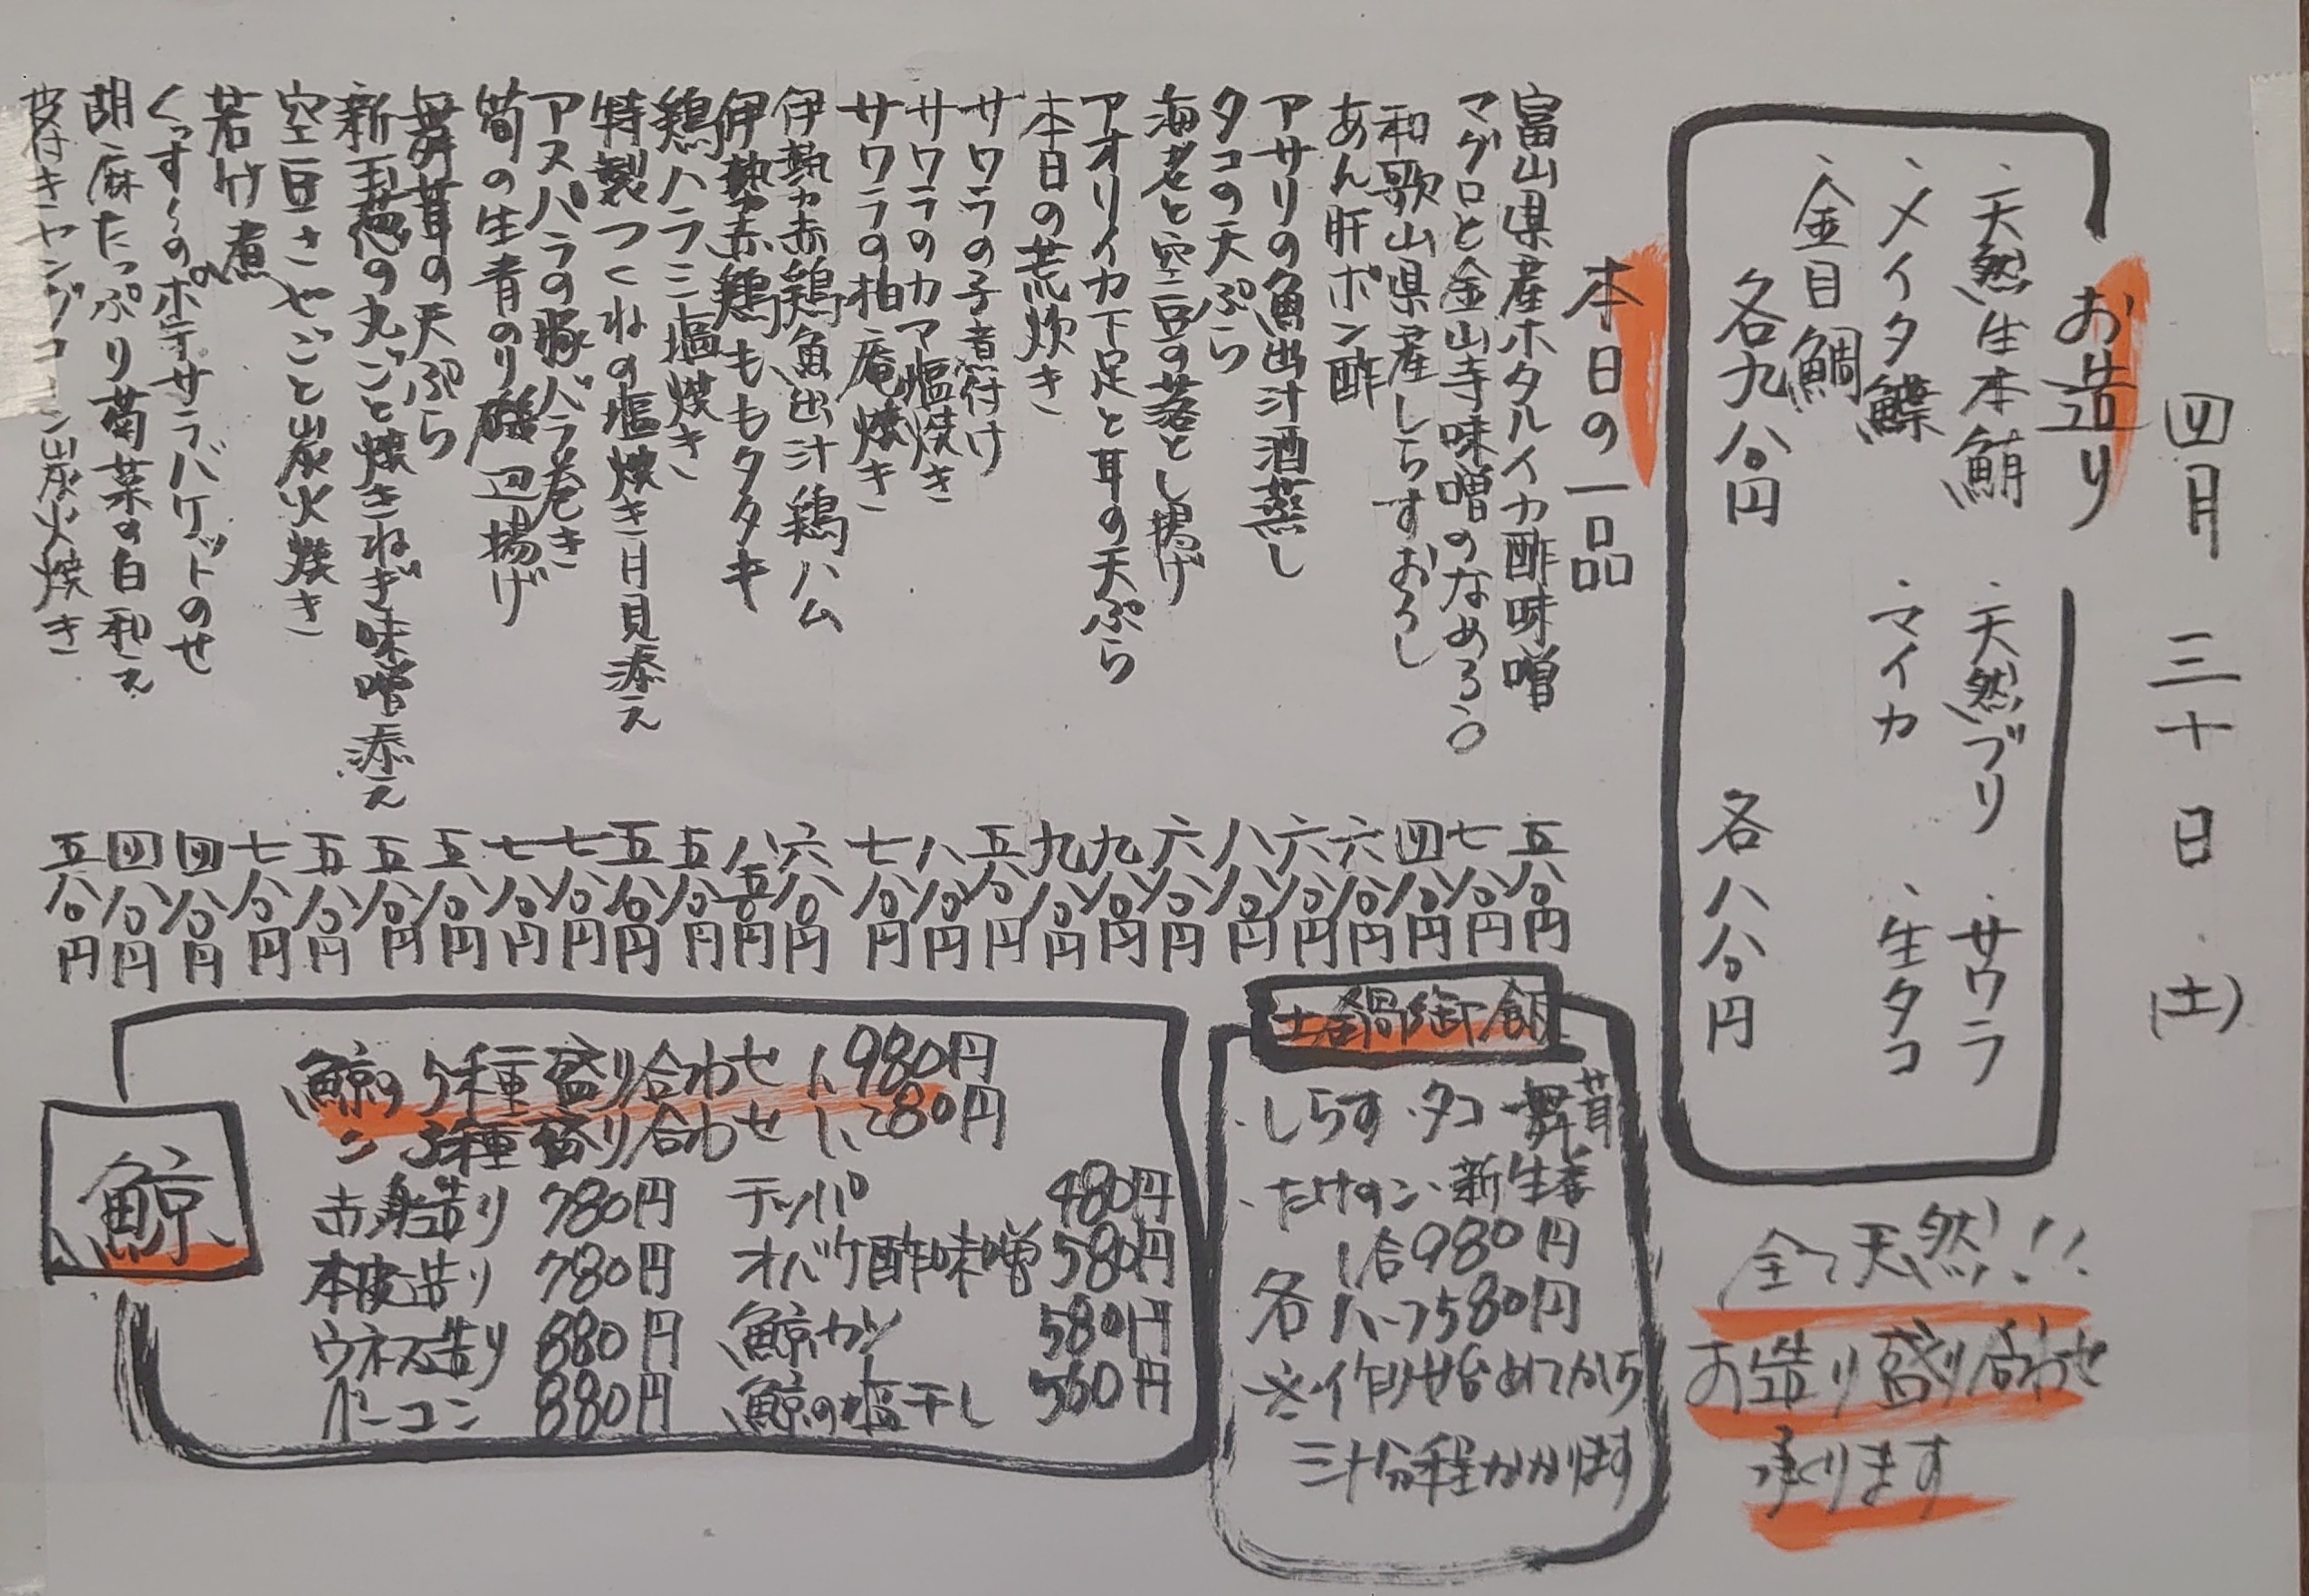 四月三十日(土)
お造り
・天然生本鮪 ・天然ブリ ・サワラ
・メイタ鰈 ・マイカ ・生タコ
・金目鯛
各九八〇円 各八八〇円
全て天然!!
お造り盛り合わせ
承ります
本日の一品
富山県産ホタルイカ酢味噌 五八〇円
マグロと金山寺味噌のなめろう 七八〇円
和歌山県産しらすおろし 四八〇円
あん肝ポン酢 六八〇円
アサリの魚出汁酒蒸し 六八〇円
タコの天ぷら 八八〇円
海老と空豆の落とし揚げ 六八〇円
アオリイカ下足と耳の天ぷら 九八〇円
本日の荒炊き 九八〇円
サワラの子煮付け 五八〇円
サワラのカマ塩焼き 八八〇円
サワラの柚庵焼き 七八〇円
伊勢赤鶏魚出汁鶏ハム 六八〇円
伊勢赤鶏ももタタキ 八五〇円
鶏ハラミ塩焼き 五八〇円
特製つくねの塩焼き月見添え 五六〇円
アスパラの豚バラ巻き 七八〇円
筍の生青のり磯辺揚げ 七八〇円
舞茸の天ぷら 五八〇円
新玉葱の丸ごと焼きねぎ味噌添え 五八〇円
空豆さやごと炭火焼き 五八〇円
若竹煮 七八〇円
くっすんのポテサラバケットのせ 四八〇円
胡麻たっぷり菊菜の白和え 四八〇円
皮付きヤングコーン炭火焼き 五八〇円
土鍋御飯
・しらす ・タコ ・舞茸
・たけのこ ・新生姜
各 1合980円
ハーフ580円
※作り始めてから
三十分程かかります
鯨
鯨の5種盛り合わせ 1,980円
〃 3種盛り合わせ 1,280円
赤身造り 780円 テッパ 480円
本皮造り 780円 オバケ酢味噌 580円
ウネス造り 880円 鯨カツ 580円
ベーコン 880円 鯨の塩干し 560円